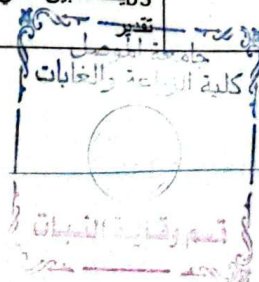 تقدير
جامعة الموصل
كلية الزراعة والغابات
قسم وقاية النبات